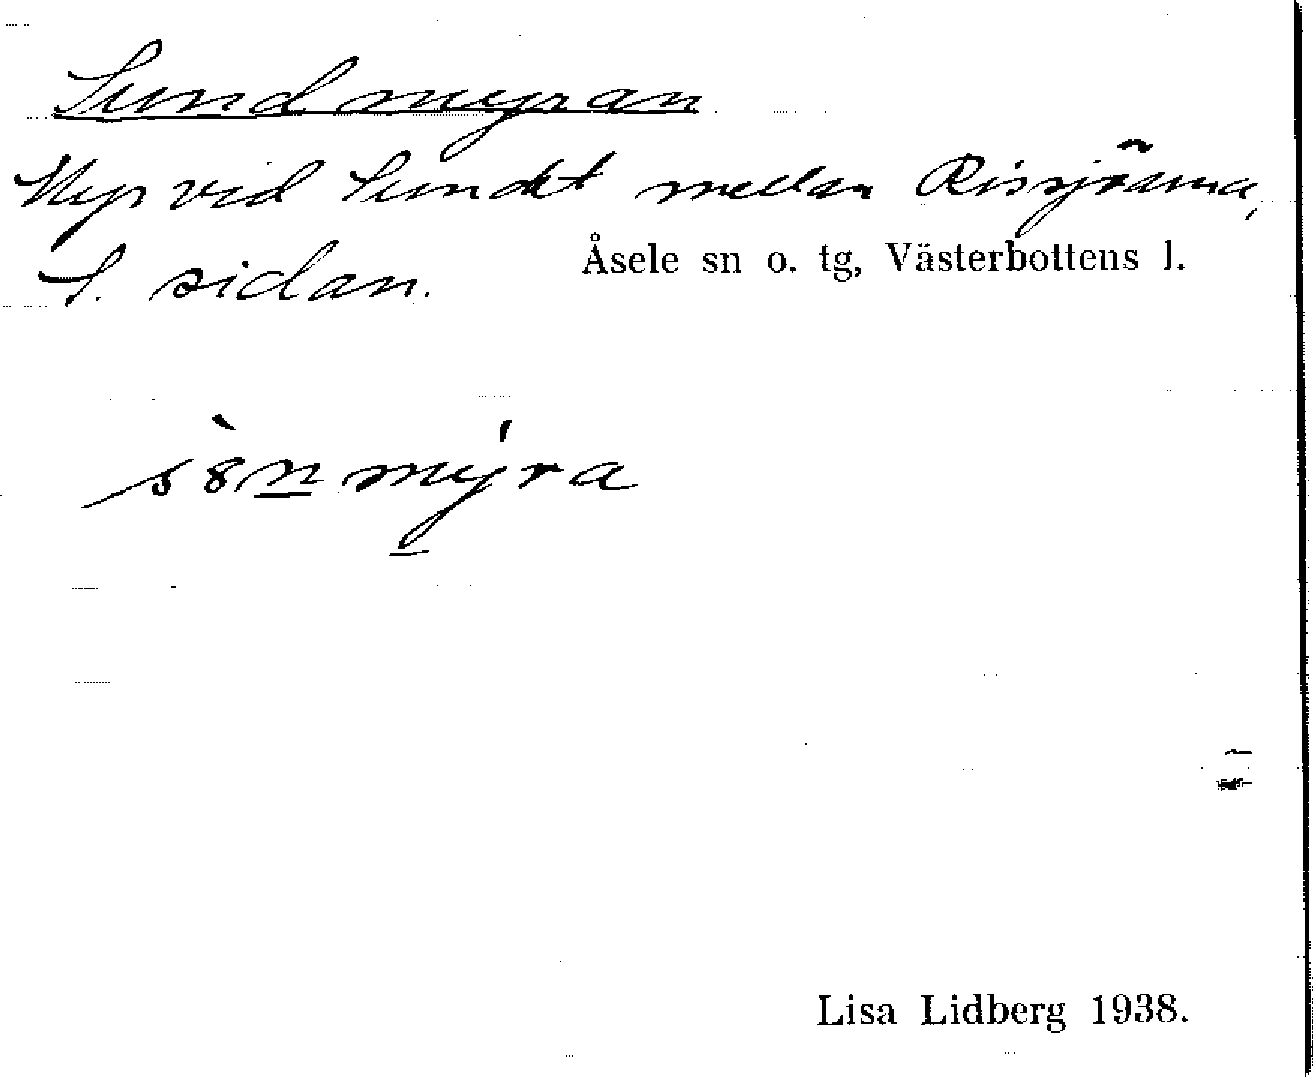 Sundmyran
Myr vid Sundet mellan Rissjöarna,
S. sidan.
Åsele sn o. tg, Västerbottens l.
Lisa Lidberg 1938.